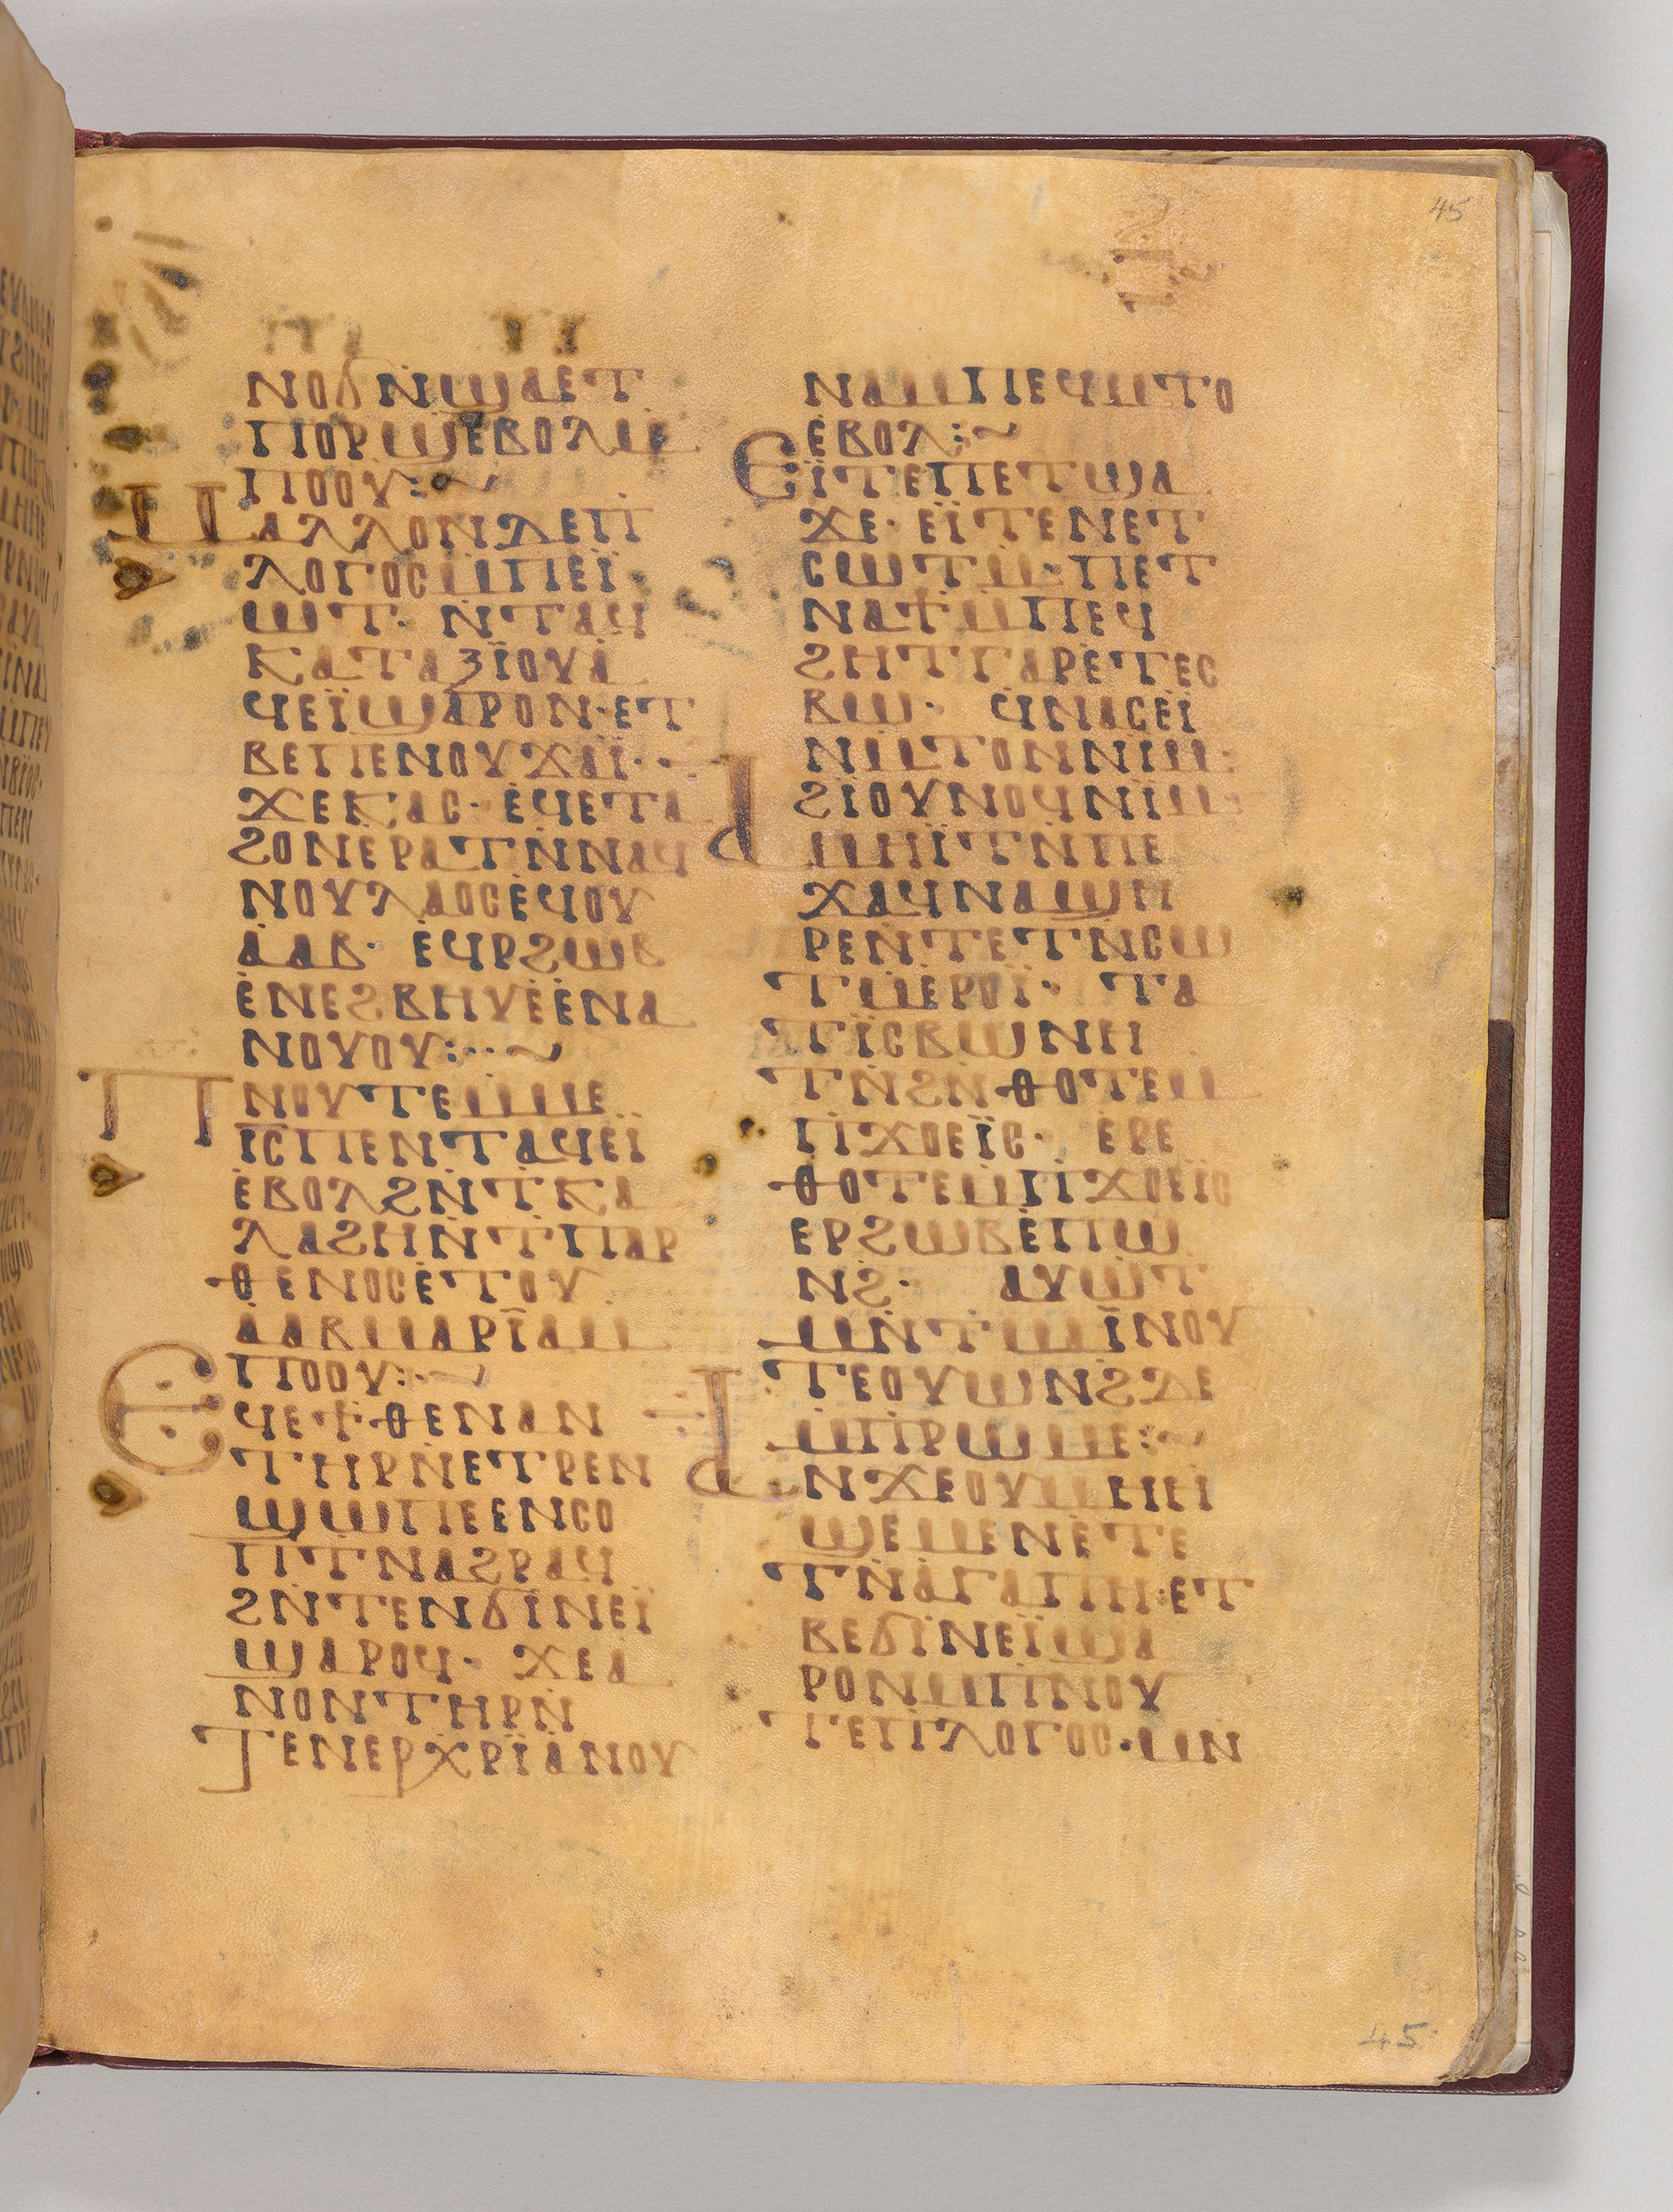 45
ⲛⲟϭⲛ̇ϣⲁⲉⲧ
ⲡⲟⲣϣⲉⲃⲟⲗⲙ̇
ⲡⲟⲟⲩ:~
ⲙⲁⲗⲗⲟⲛⲇⲉⲡ
ⲗⲟⲅⲟⲥⲙ̇ⲡⲉⲓ̈
ⲱⲧ· ⲛ̇ⲧⲁϥ
ⲕⲁⲧⲁⲝⲓ̈ⲟⲩⲁ̇
ϥⲉⲓ̈ϣⲁⲣⲟⲛ·ⲉⲧ
ⲃⲉⲡⲉⲛⲟⲩϫⲁⲓ̈·
ϫⲉⲕⲁⲥ· ⲉ̇ϥⲉⲧⲁ
ϩⲟⲛⲉ̇ⲣⲁⲧⲛ̇ⲛⲁϥ
ⲛⲟⲩⲗⲁⲟⲥⲉ̇ϥⲟⲩ
ⲁ̇ⲁⲃ· ⲉ̇ϥⲣϩⲱⲃ
ⲉ̇ⲛⲉϩⲃⲏⲩⲉ̇ⲉ̇ⲛⲁ
ⲛⲟⲩⲟⲩ:··~
ⲡⲛⲟⲩⲧⲉⲙ̇ⲙⲉ
ⲓ̅ⲥ̅ⲡⲉⲛⲧⲁϥⲉⲓ̈
ⲉ̇ⲃⲟⲗϩⲛ̇ⲧⲕⲁ
ⲗⲁϩⲏⲛ̇ⲧⲡⲁⲣ
ⲑⲉⲛⲟⲥⲉ̇ⲧⲟⲩ
ⲁ̇ⲁⲃⲙⲁⲣⲓ̈ⲁⲙ
ⲙ̇ⲡⲟⲟⲩ:·~
ⲉϥⲉϯⲑⲉⲛⲁⲛ
ⲧⲏⲣⲛ̇ⲉⲧⲣⲉⲛ
ϣⲱⲡⲉⲉⲛⲥⲟ
ⲡⲧⲛⲁϩⲣⲁϥ
ϩⲛ̇ⲧⲉⲛϭⲓⲛⲉⲓ̈
ϣⲁⲣⲟϥ· ϫⲉⲁ̇
ⲛⲟⲛⲧⲏⲣⲛ̇
ⲧⲉⲛⲉⲣⲭⲣⲓ̈ⲁⲛⲟⲩ
ⲛⲁⲙⲡⲉϥⲙ̇ⲧⲟ
ⲉ̇ⲃⲟⲗ:~
ⲉⲓ̈ⲧⲉⲡⲉⲧϣⲁ
ϫⲉ· ⲉⲓ̈ⲧⲉⲛⲉⲧ
ⲥⲱⲧⲙ̇·ⲡⲉⲧ
ⲛⲁϯⲙ̇ⲡⲉϥ
ϩⲏⲧⲅⲁⲣⲉ̇ⲧⲉⲥ
ⲃⲱ· ϥⲛⲁϭⲉⲓ̈
ⲛⲙ̇ⲧⲟⲛⲛⲓⲙ·
ϩⲓⲟⲩⲛⲟϥⲛⲓⲙ
ⲁⲙⲏⲓ̈ⲧⲛ̇ⲡⲉ
ϫⲁϥⲛⲁϣⲏ
ⲣⲉⲛ̇ⲧⲉⲧⲛ̇ⲥⲱ
ⲧⲙ̇ⲉ̇ⲣⲟⲓ̈· ⲧⲁ
ⲧⲥⲃⲱⲛⲏ
ⲧⲛ̇ϩⲛ̇ⲑⲟⲧⲉⲙ
ⲡϫⲟⲉⲓ̈ⲥ· ⲉⲣⲉ
ⲑⲟⲧⲉⲙ̇ⲡϫⲟⲉⲓ̈ⲥ
ⲉⲣϩⲱⲃⲉ̇ⲡⲱ
ⲛϩ· ⲁⲩⲱⲧ
ⲙⲛ̇ⲧϣⲓ̅ⲛⲟⲩ
ⲧⲉⲟⲩⲱⲛϩⲇⲉ
ⲙ̇ⲡⲣⲱⲙⲉ:~
ⲁⲛϫⲉⲟⲩⲙⲏⲏ
ϣⲉⲙⲉⲛⲉ̇ⲧⲉ
ⲧⲛ̇ⲁ̇ⲅⲁⲡⲏ·ⲉⲧ
ⲃⲉϭⲓⲛⲉⲓ̈ϣⲁ
ⲣⲟⲛⲙ̇ⲡⲛⲟⲩ
ⲧⲉⲡⲗⲟⲅⲟⲥ·ⲙⲛ̇
45